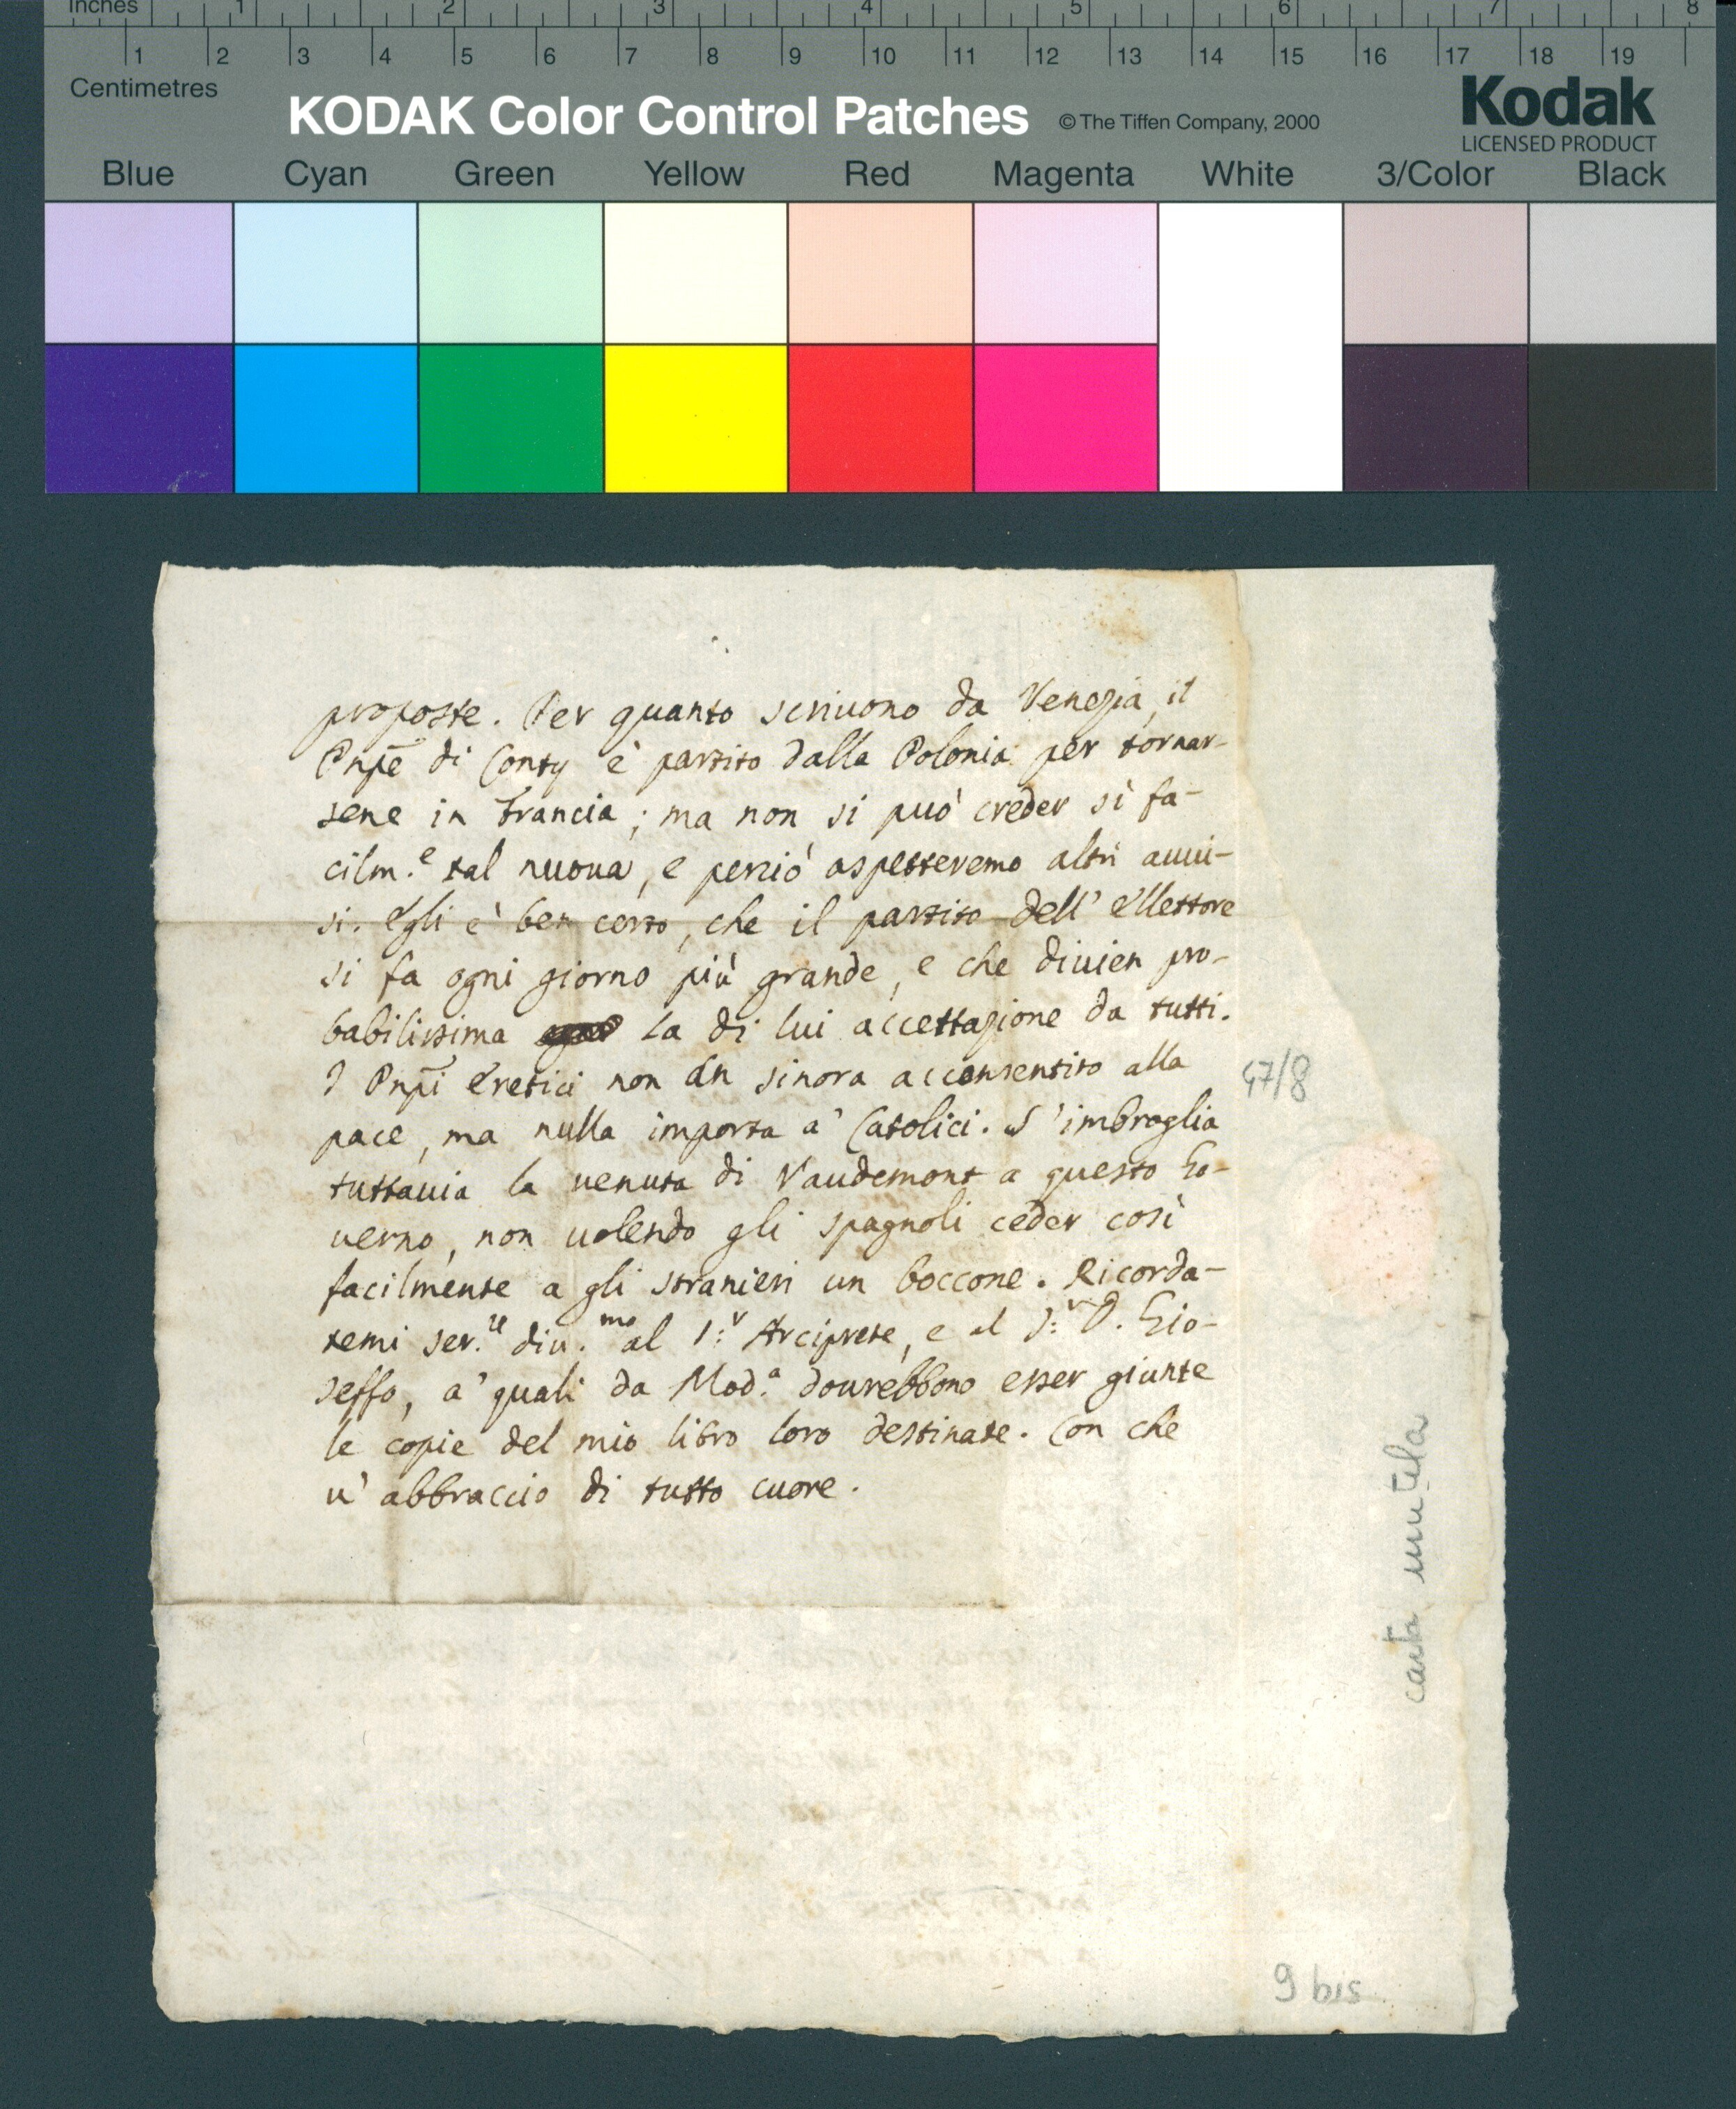 Inches 1 2 3 4 5 6 7 8
1 2 3 4 5 6 7 8 9 10 11 12 13 14 15 16 17 18 19
Centimetres
KODAK Color Control Patches © The Tiffen Company, 2000
Kodak
LICENSED PRODUCT
Blue Cyan Green Yellow Red Magenta White 3/Color Black
proposte. Per quanto scriuono da Venezia, il
Pnpē di Conty è partito dalla Polonia per tornar-
sene in Francia; ma non si può creder sì fa-
cilm.e tal nuoua, e perciò aspetteremo altri auui-
si. Egli è ben certo, che il partito dell' Ellettore
si fa ogni giorno più grande, e che diuien pro-
babilissima la di lui accettazione da tutti.
I Pnpī Eretici non àn sinora acconsentito alla
pace, ma nulla importa a' Catolici. S'imbroglia
tuttauia la uenuta di Vaudemont a questo Go-
uerno, non uolendo gli spagnoli ceder così
facilmente a gli stranieri un boccone. Ricorda-
temi ser.re diu.mo al S:r Arciprete, e al S:r D. Gio-
seffo, a' quali da Mod.a dourebbono esser giunte
le copie del mio libro loro destinate. Con che
u' abbraccio di tutto cuore.
47/8
carta mutila
9 bis